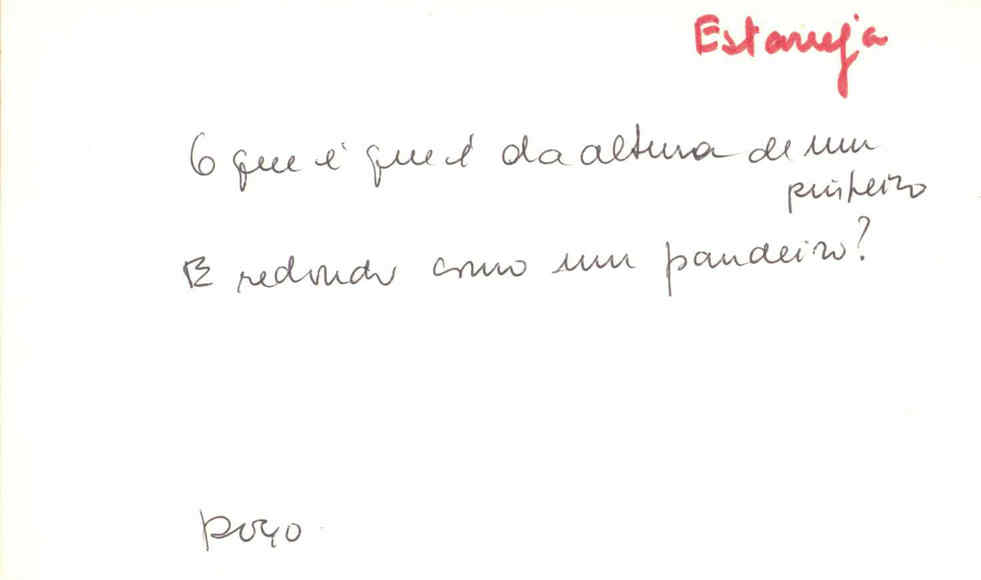 Estarreja
O que é que é da altura de um
pinheiro
E redondo como um pandeiro?
poço